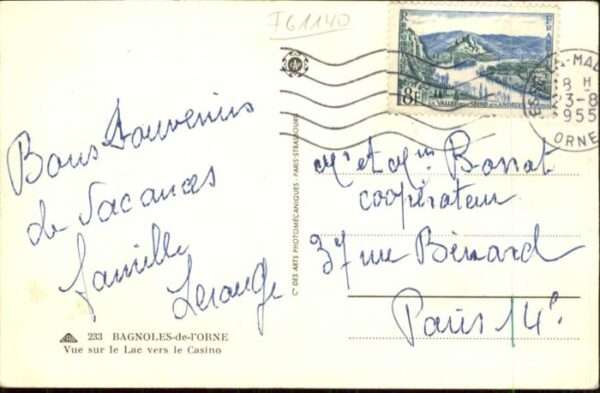 J61140
Bons Souvenirs
de Vacances
famille
Lerouge
233 BAGNOLES-de-l'ORNE
Vue sur le Lac vers le Casino
Cie DES ARTS PHOTOMÉCANIQUES - PARIS-STRASBOURG
8F
8 H
3-8
1955
ORNE
Mr et Mme Bonnat
coopérateur
37 rue Bénard
Paris 14e